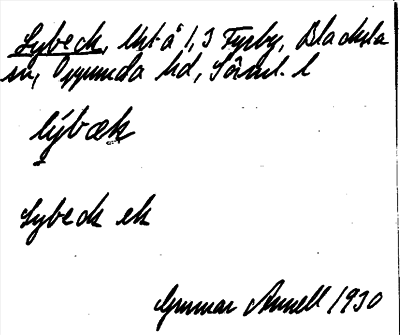 Lybeck, Utså 1, I Fyrby, Blacksta
sn, Oppunda hd, Södml. l
lýbæk
Lybeck ek
Gunnar Annell 1930